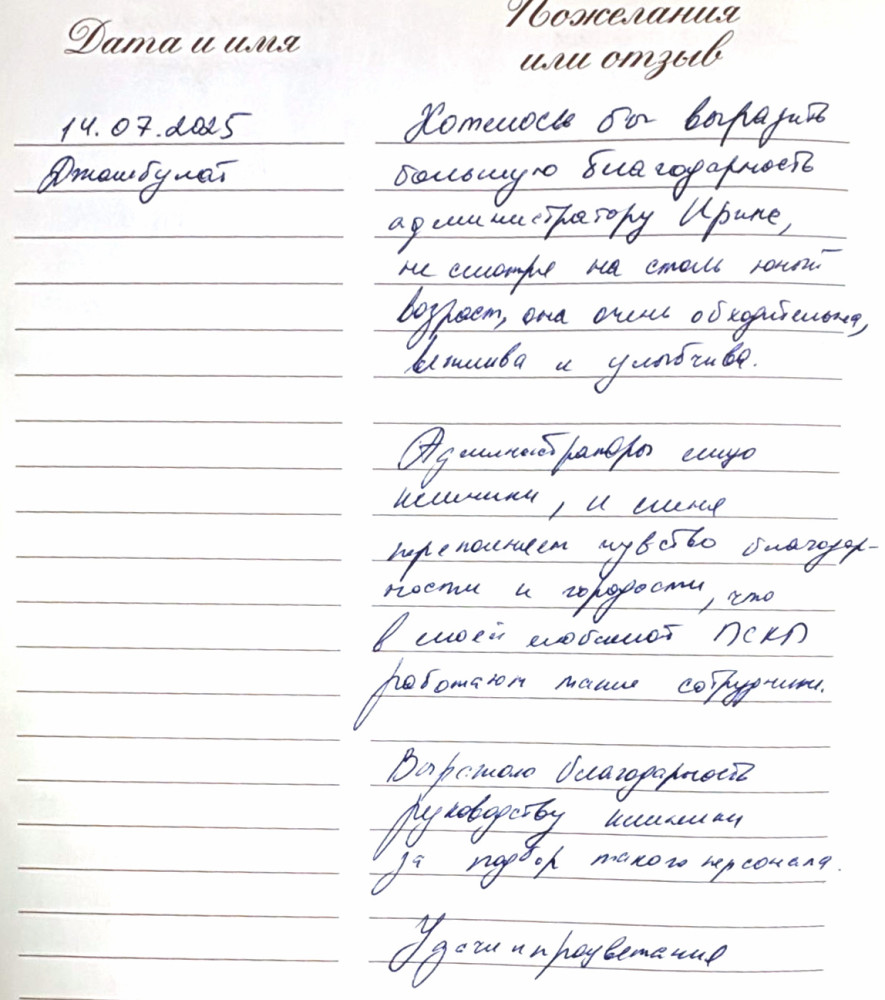 Дата и имя
Пожелания
или отзыв
14.07.2025
Джамбулат
Хотелось бы выразить
большую благодарность
администратору Ирине,
не смотря на столь юный
возраст, она очень обходительна,
вежлива и улыбчива.
Администраторы лицо
клиники, и меня
переполняет чувство благодар-
ности и гордости, что
в моей любимой ПСКП
работают такие сотрудники.
Выражаю благодарность
руководству клиники
за подбор такого персонала.
Удачи и процветания